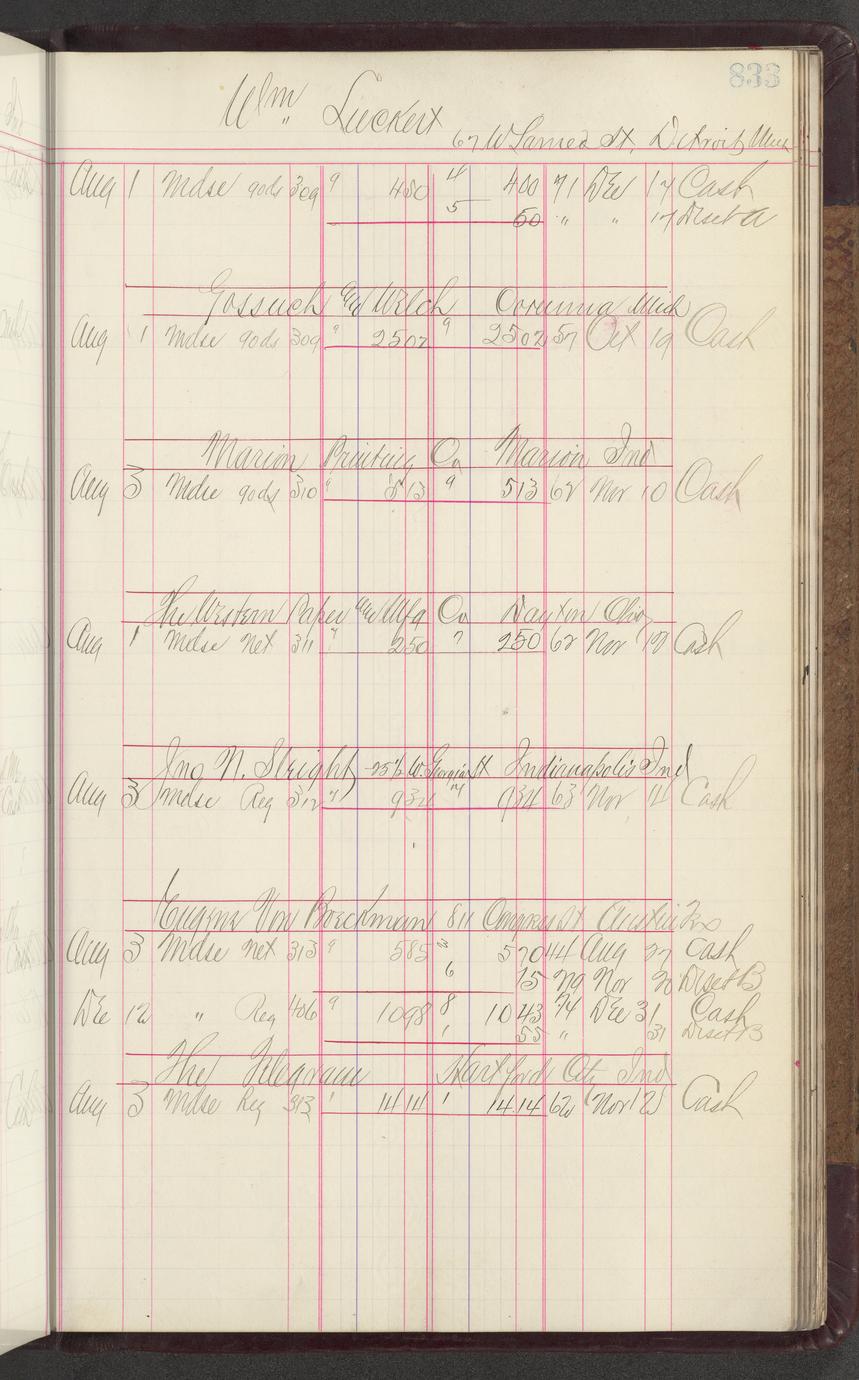 833
Wm Lueckert
67 W Larned St. Detroit Mich
Aug 1 Mdse 90ds 309 9 450 4 400 71 Dec 17 Cash
5 50 " " 17 Disct A
Gossuch and Welch Corunna Mich
Aug 1 Mdse 90ds 309 9 2502 9 2502 57 Oct 19 Cash
Marion Printing Co Marion Ind
Aug 3 Mdse 90ds 310 9 513 9 513 62 Nov 10 Cash
The Western Paper and Mfg Co Dayton Ohio
Aug 1 Mdse Net 311 250 7 250 62 Nov Cash
Jno N. Sleight W. Georgia St Indianapolis Ind
Aug 3 Mdse Reg 312 934 934 63 Nov 11 Cash
Eugene Von Boeckman 811 Congress St Austin Tex
Aug 3 Mdse net 313 9 585 3 570 44 Aug 27 Cash
6 15 Nov Disct B
Dec 12 " Reg 406 9 1098 8 1043 74 Dec 31 Cash
1 55 " 31 Disct B
The Telegram Hartford City Ind
Aug 3 Mdse Reg 313 1 1414 1 1414 62 Nov Cash